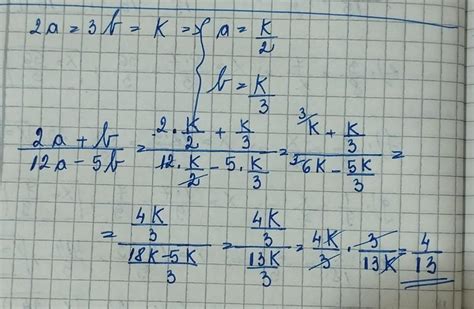 2a = 3b = K => { a = K/2
b = K/3
(2a + b)/(12a - 5b) = (2·K/2 + K/3)/(12·K/2 - 5·K/3) = (³⁄K + K/3)/(³⁄6K - 5K/3) =
= (4K/3)/((18K-5K)/3) = (4K/3)/(13K/3) = 4K/3 · 3/13K = 4/13